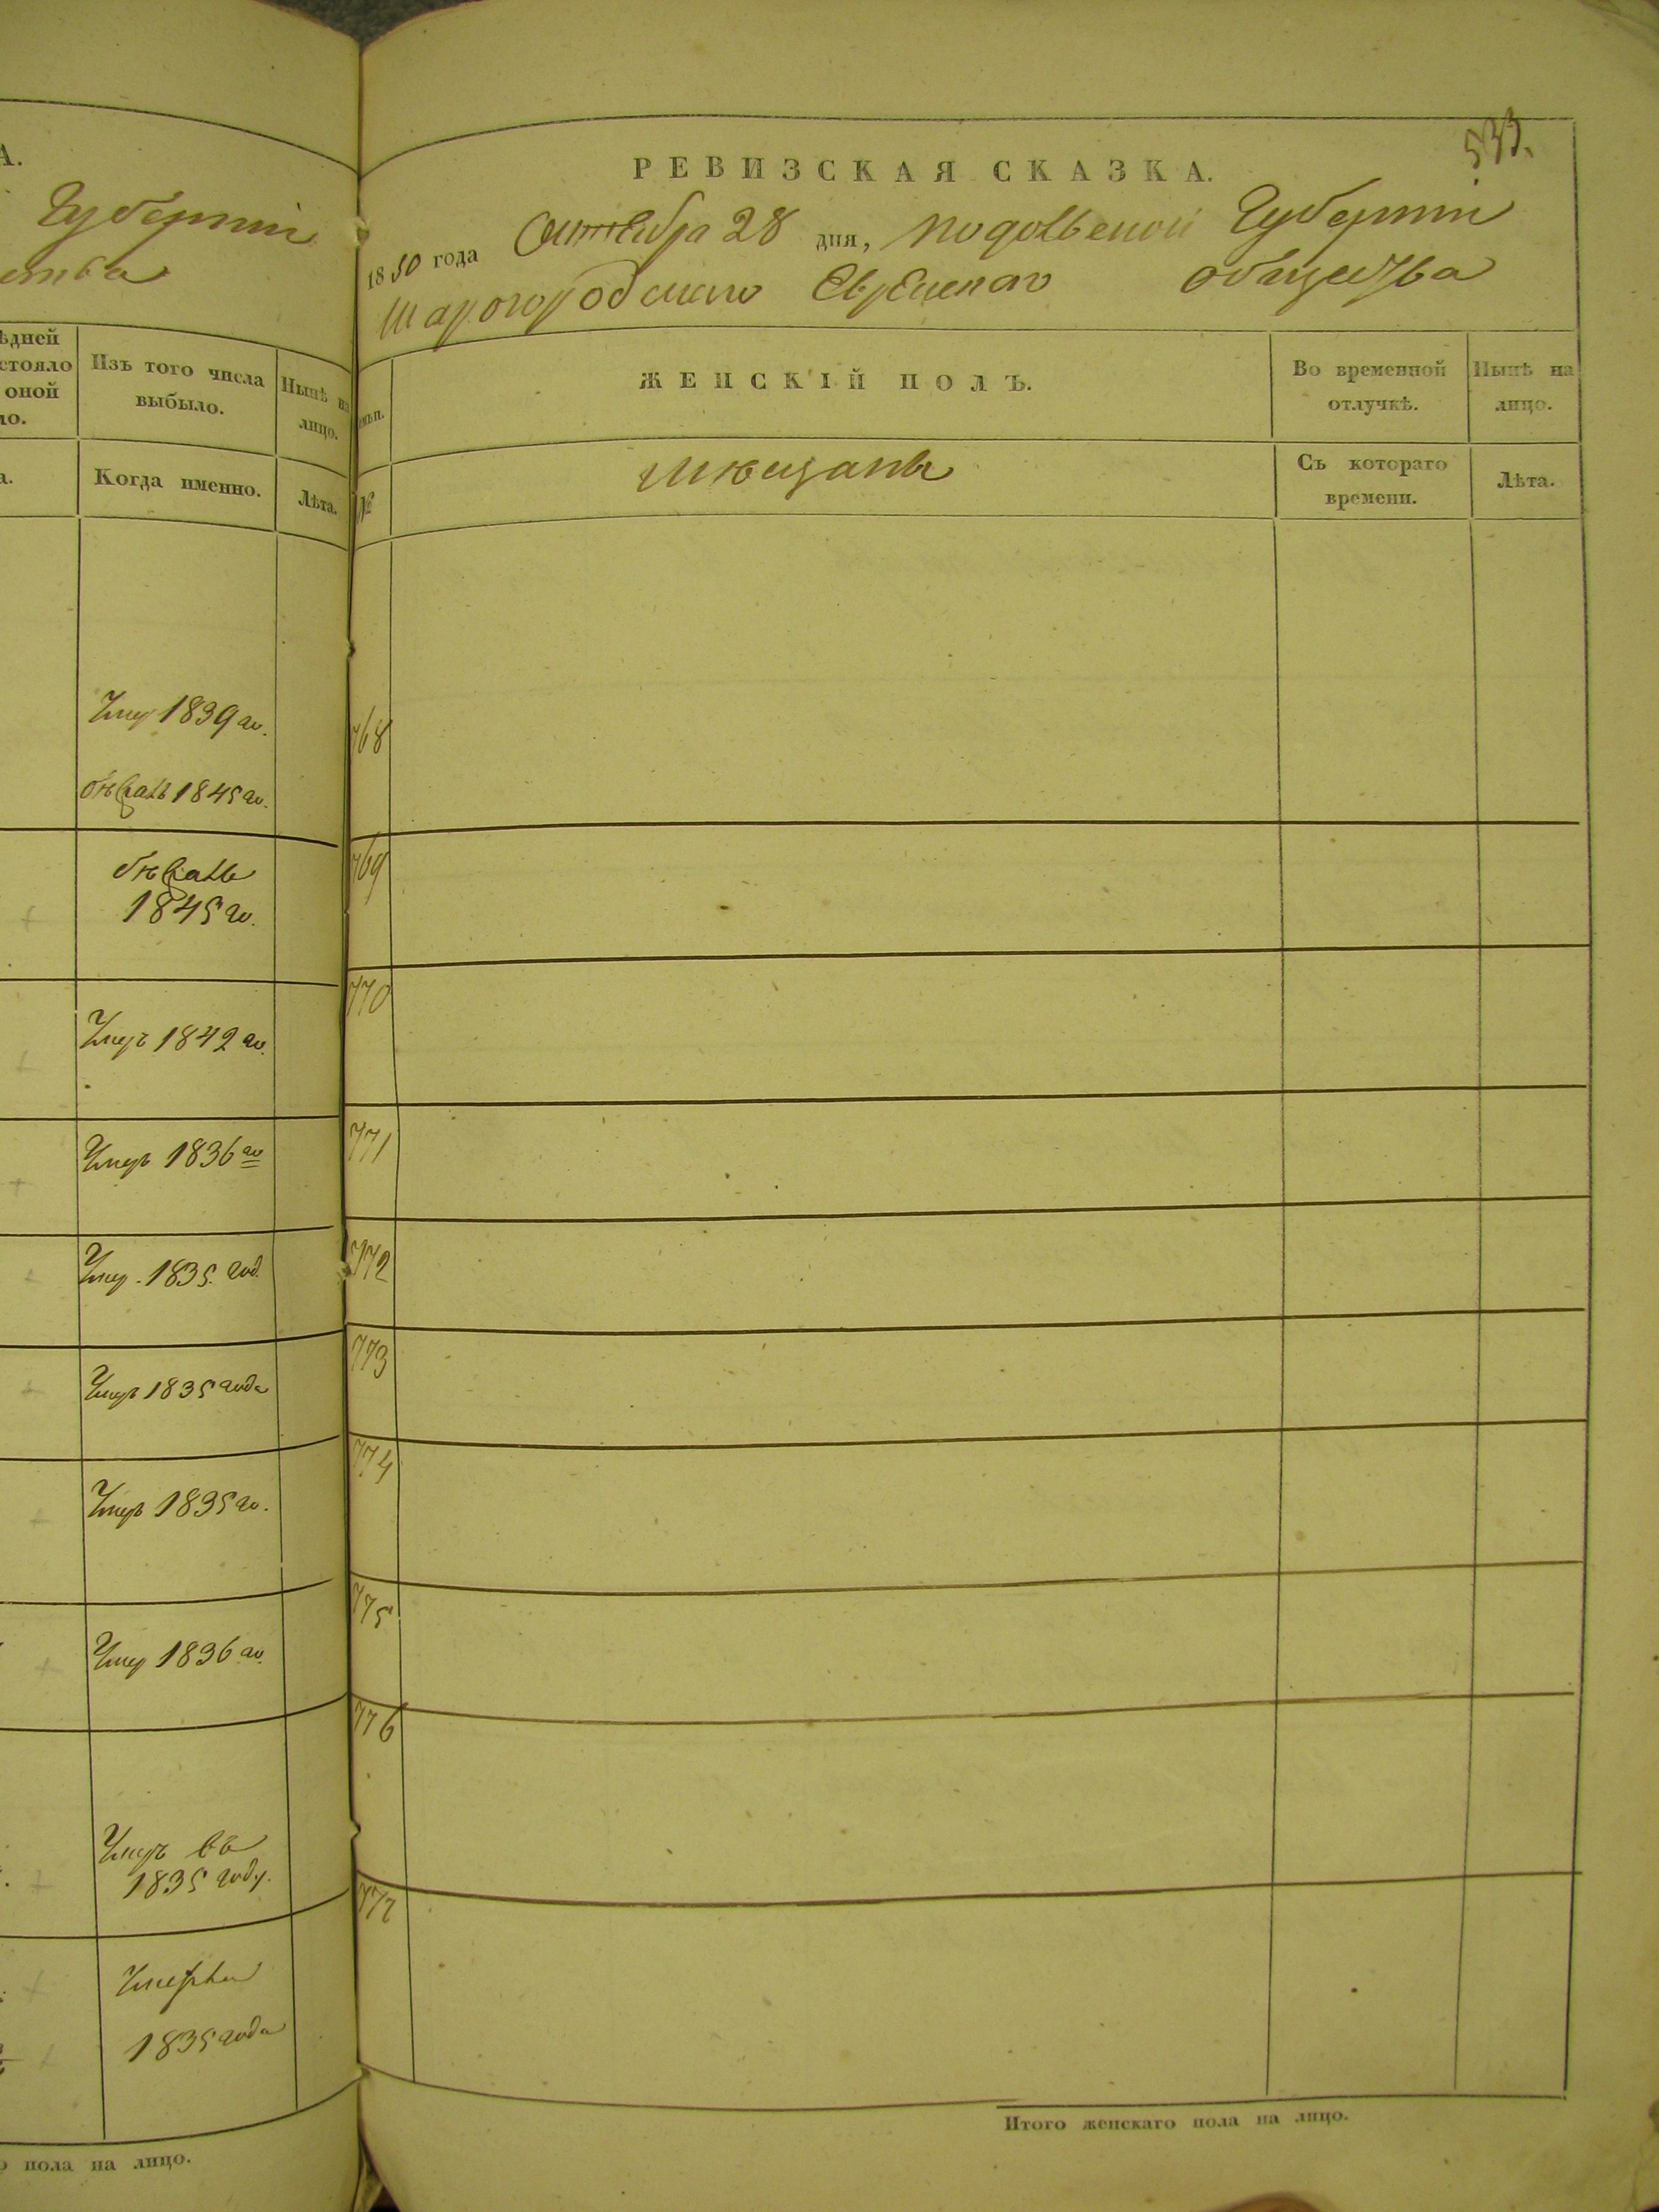 А.
Губерніи
ества
ѣдней
стояло
оной
ло.
Изъ того числа
выбыло.
Нынѣ на
лицо.
а.
Когда именно.
Лѣта.
Умер 1839 го.
бѣжалъ 1845 го.
бѣжалъ
1845 го.
Умеръ 1842 го.
Умеръ 1836 го
Умер. 1835. год.
Умеръ 1835 года
Умеръ 1835 го.
Умер 1836 го.
Умеръ въ
1835 году.
Умерли
1835 года
о пола на лицо.
533.
РЕВИЗСКАЯ СКАЗКА.
1850 года Октебра 28 дня, Подольской Губерніи
Шаргородского Еврейского общества
ЖЕНСКІЙ ПОЛЪ.
Во временной
отлучкѣ.
Нынѣ на
лицо.
№
мѣщанъ
Съ котораго
времени.
Лѣта.
768
769
770
771
772
773
774
775
776
777
Итого женскаго пола на лицо.